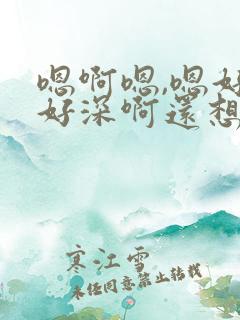 嗯啊嗯,嗯好
好深啊還想
寒江雪
未经同意禁止转载